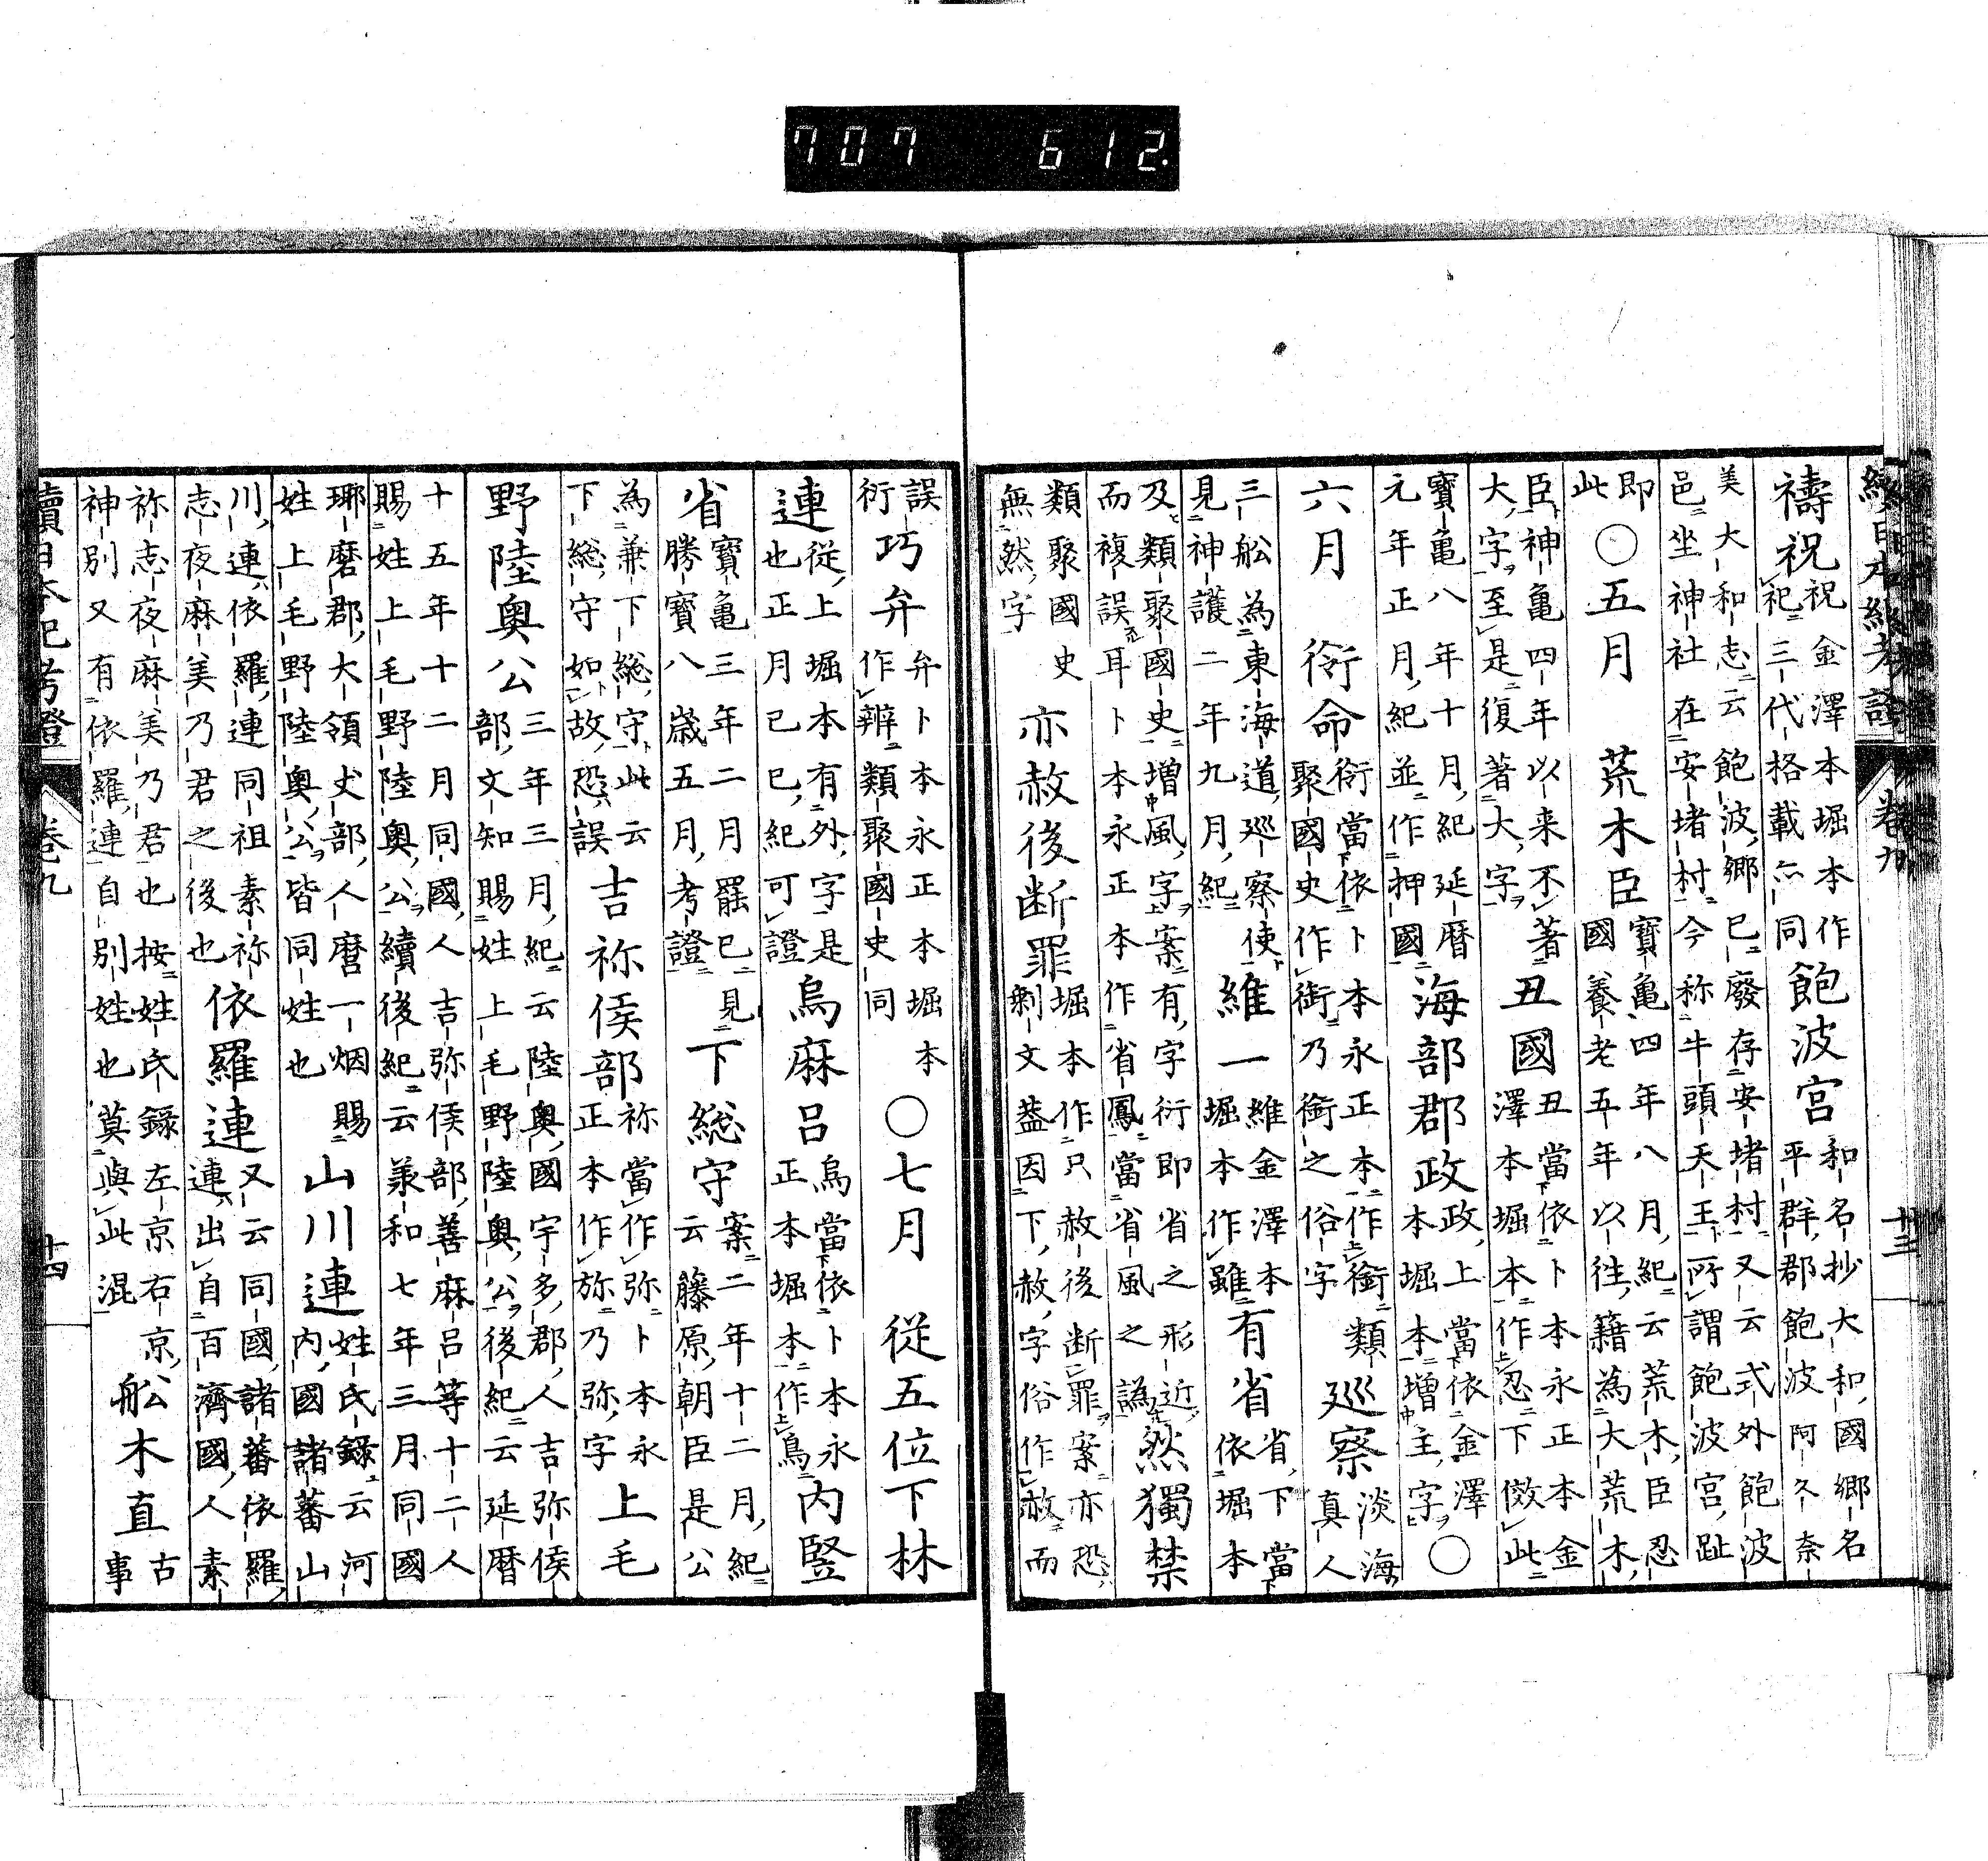 707 612
續日本紀考證 卷九 十三
禱祝祝金澤本堀本作祀三代格載亦同飽波宮和名抄大和國鄉名平群郡飽波阿久奈
美大和志云飽波鄉已廢存安堵村又云式外飽波邑坐神社在安堵村今称牛頭天王所謂飽波宮趾
即此〇五月 荒木臣寶亀四年八月紀云荒木臣忍國養老五年以往籍為大荒木
臣神亀四年以来不著大字至是復著大字丑國丑當依卜本永正本金澤本堀本作忍下傚此
寶亀八年十月紀延暦元年正月紀並作押國海部郡政政上當依金澤本堀本增主字〇
六月 衙命衙當依卜本永正本作銜類聚國史作衘乃銜之俗字巡察淡海真人
三舩為東海道巡察使見神護二年九月紀維一維金澤本堀本作雖有省省下當依堀本
及類聚國史增風字案有字衍即省之形近而複誤耳卜本永正本作省鳳當省風之譌然獨禁
類聚國史無然字亦赦後断罪堀本作只赦後断罪案亦恐剰文葢因下赦字俗作赦而
誤衍巧弁弁卜本永正本堀本作辨類聚國史同〇七月 從五位下林
連從上堀本有外字是也正月己巳紀可證烏麻呂烏當依卜本永正本堀本作鳥內竪
省寶亀三年二月罷已見勝寶八歳五月考證下総守案二年十二月紀云藤原朝臣是公
為兼下総守此云下総守如故恐誤吉祢侯部祢當作弥卜本永正本作㫆乃弥字上毛
野陸奥公三年三月紀云陸奥國宇多郡人吉弥侯部文知賜姓上毛野陸奥公後紀云延暦
十五年十二月同國人吉弥侯部善麻呂等十二人賜姓上毛野陸奥公續後紀云羕和七年三月同國
耶磨郡大領丈部人麿一烟賜姓上毛野陸奥公皆同姓也山川連姓氏録云河内國諸蕃山
川連依羅連同祖素祢志夜麻美乃君之後也依羅連又云同國諸蕃依羅連出自百濟國人素
祢志夜麻美乃君也按姓氏録左京右京神別又有依羅連自別姓也莫與此混舩木直古事
續日本紀考證 卷九 十四